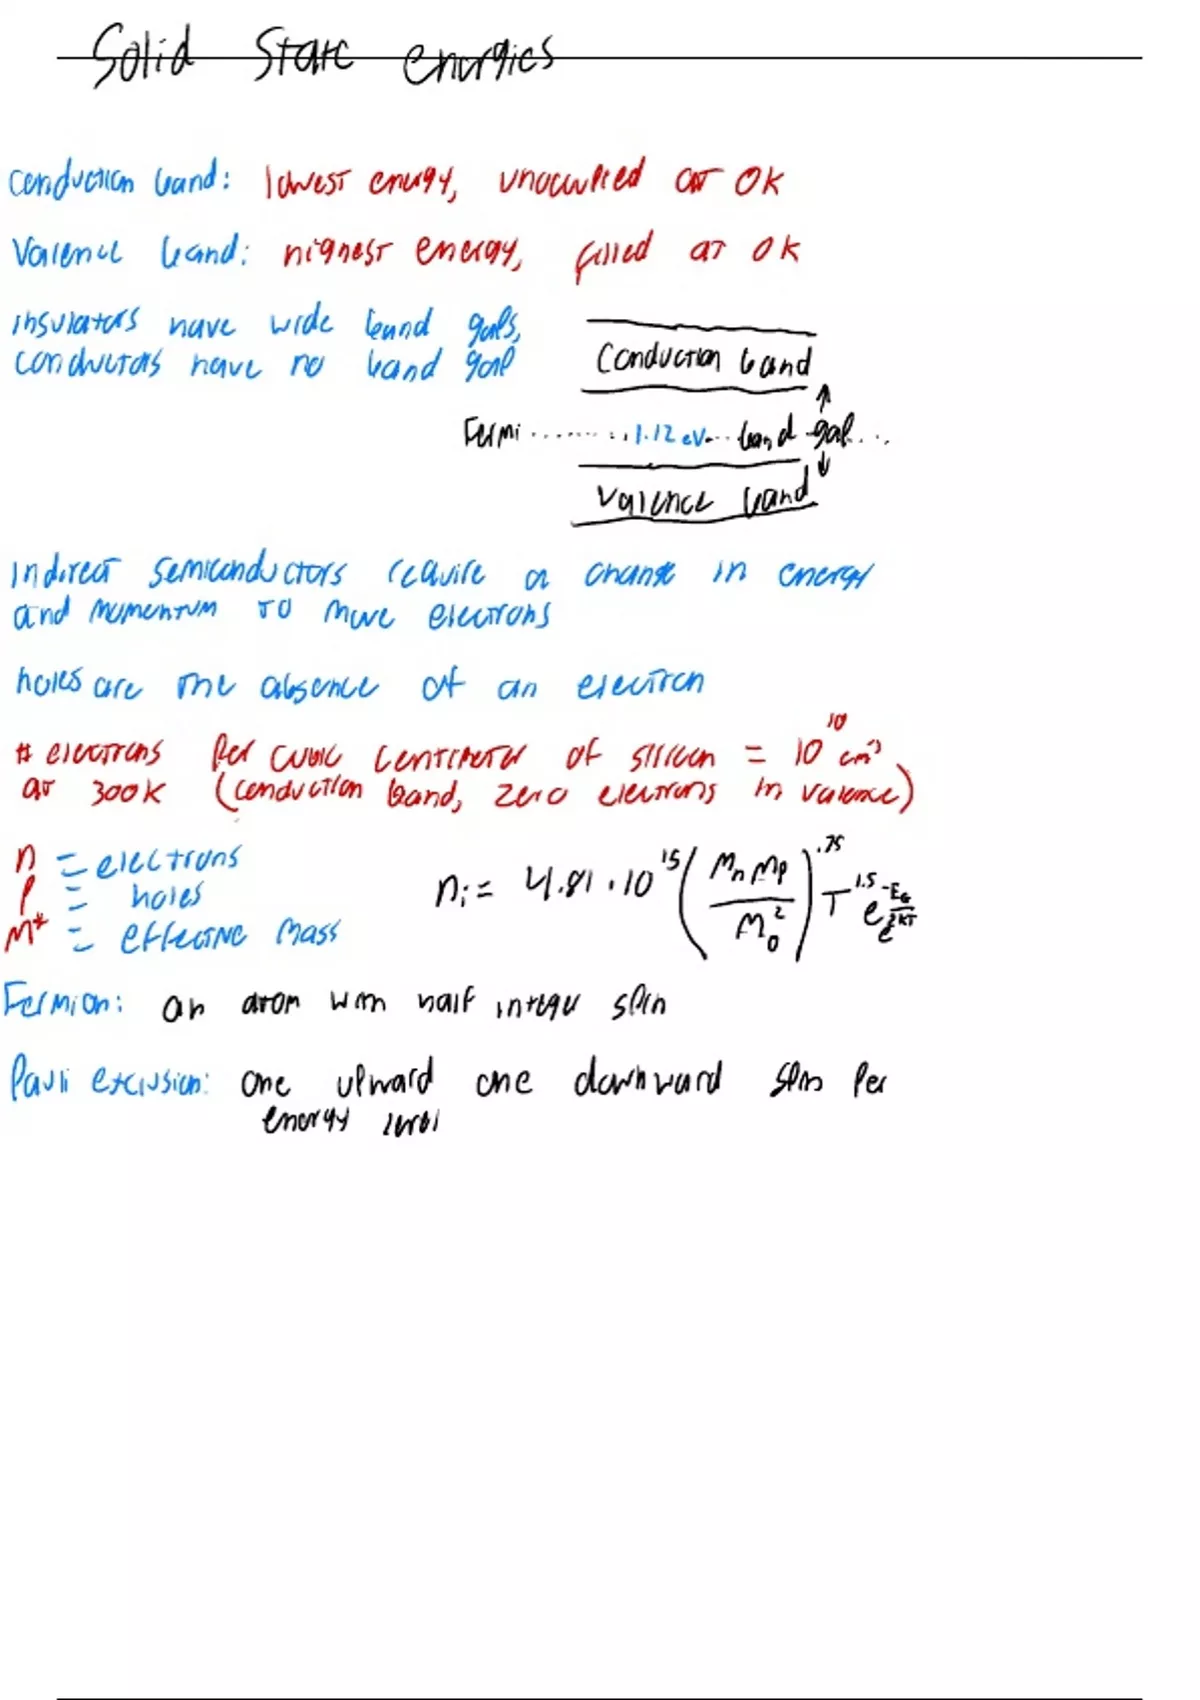 Solid State energies
Conduction band: lowest energy, unoccupied at 0K
Valence band: highest energy, filled at 0K
insulators have wide band gaps,
conductors have no band gap
Conduction band
Fermi ..........1.12 eV... band gap....
Valence band
Indirect semiconductors require a change in energy
and momentum to move electrons
holes are the absence of an electron
# electrons per cubic centimeter of silicon = 10^10 cm^-3
at 300K (conduction band, zero electrons in valence)
n = electrons
p = holes
M* = effective mass
n_i = 4.81 · 10^15 (M_n M_p / M_0^2)^.75 T^1.5 e^(-E_G / 2KT)
Fermion: an atom with half integer spin
Pauli exclusion: one upward one downward spin per
energy level